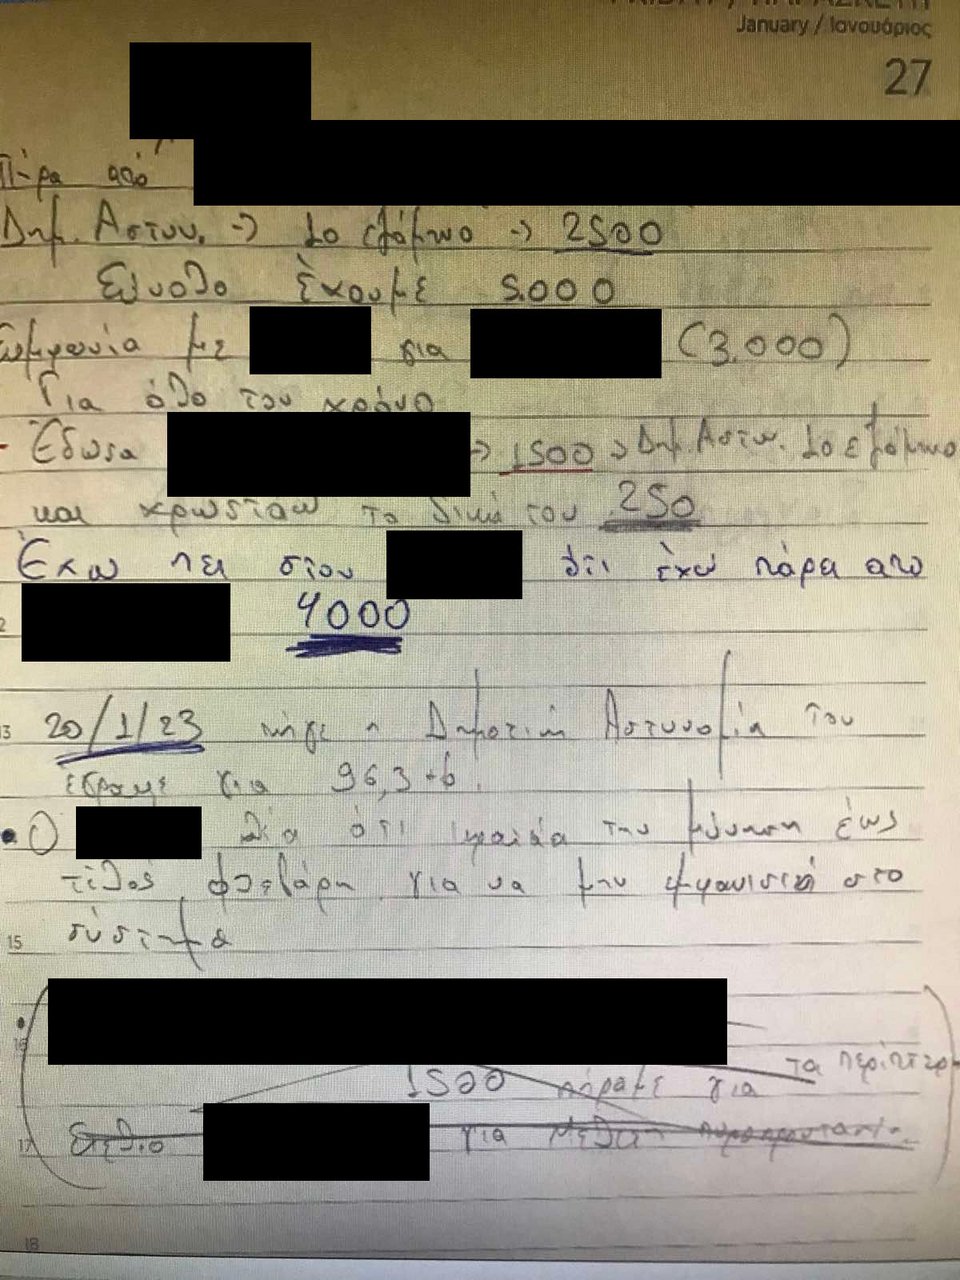 January / Ιανουάριος
27
Πήρα από
Δημ. Αστυν. → 1ο εξάμηνο → 2500
Σύνολο έχουμε 5.000
Συμφωνία με για (3.000)
Για όλο του χρόνο
- Έδωσα → 1500 → Δημ. Αστυν. 1ο εξάμηνο
και χρωστάω το δικό του 250
Έχω πει στον ότι έχω πάρει απο
4000
13 20/1/23 πήγε η Δημοτική Αστυνομία του
έγραψε για 96,3-6.
• Ο λέα ότι την μήνυση έως
τέλος φλεβάρη για να μην εμφανιστεί στο
15 σύστημα
• 16
τα περίπτερ
1500 πήραμε για
17 για
18